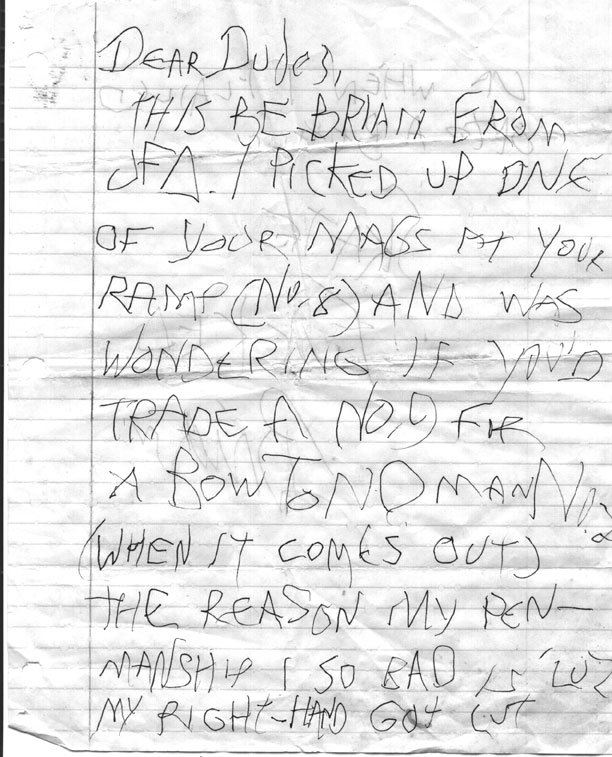 DEAR DUDES,
THIS BE BRIAN FROM
JFA. I PICKED UP ONE
OF YOUR MAGS AT YOUR
RAMP (NO. 8) AND WAS
WONDERING IF YOU'D
TRADE A NO. 9 FER
A BOW TO NO MAN NO. 2
(WHEN IT COMES OUT)
THE REASON MY PEN-
MANSHIP I SO BAD IS 'CUZ
MY RIGHT-HAND GOT CUT